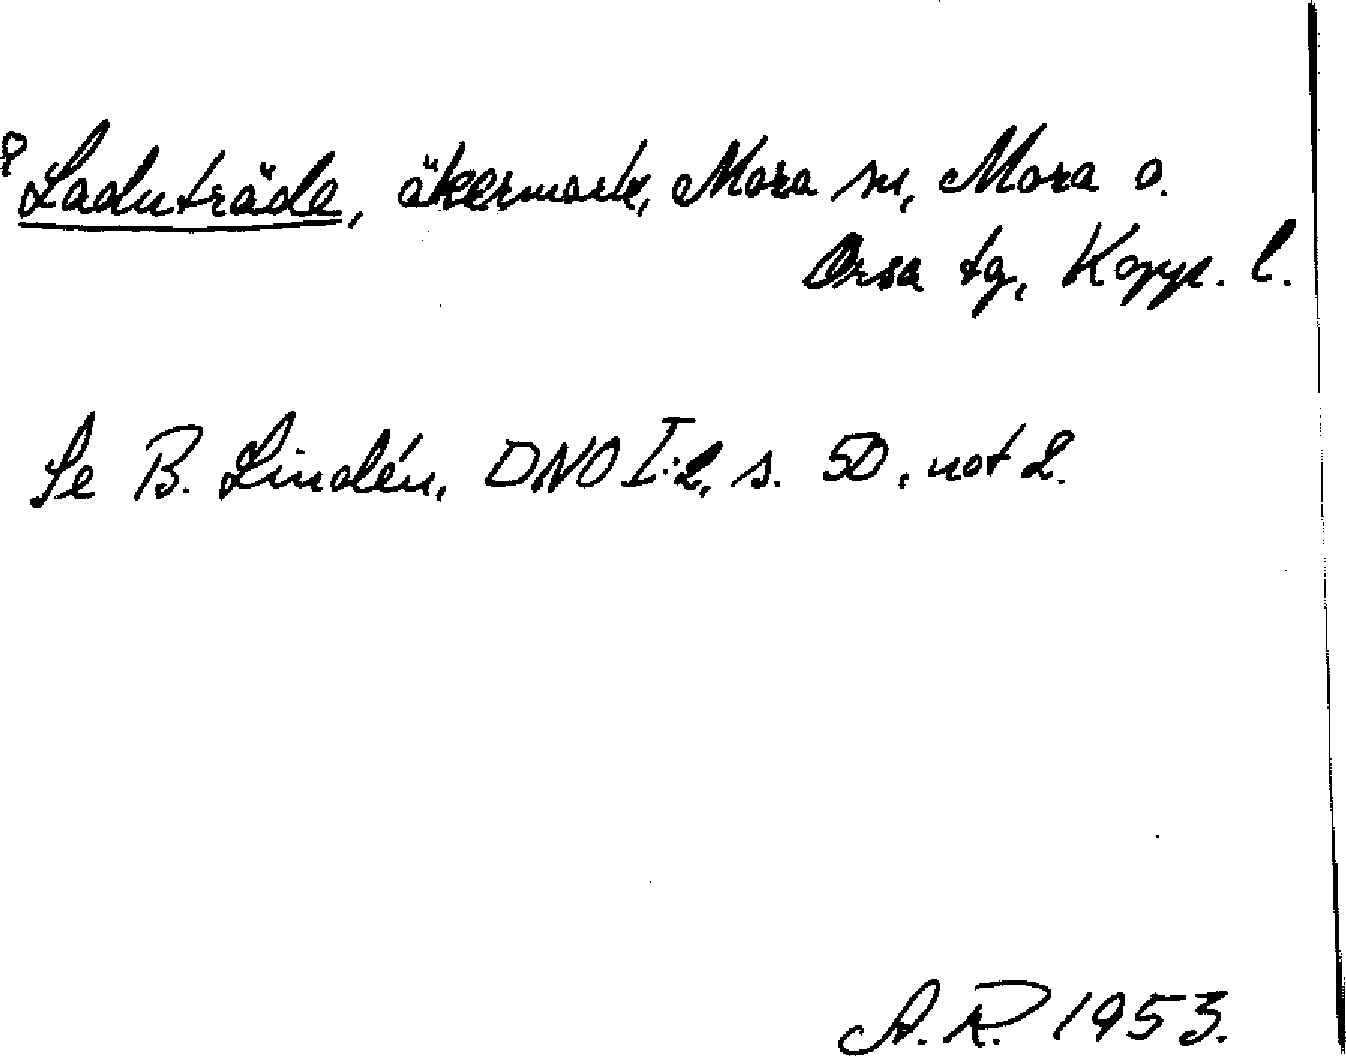 Laduträde, åkermark, Mora sn, Mora o.
Orsa tg, Kopp. l.
Se B. Lindén, DNO I:2, s. 50, not 2.
A.R. 1953.